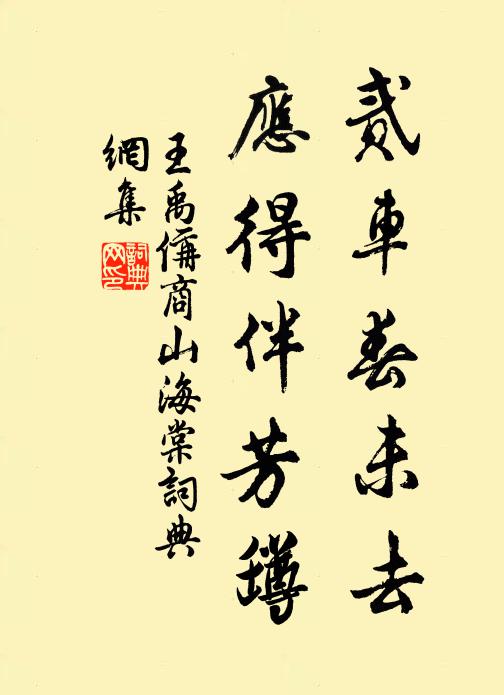 貳車春未去
應得伴芳罇
王禹偁商山海棠詞典
網集
詞典網印